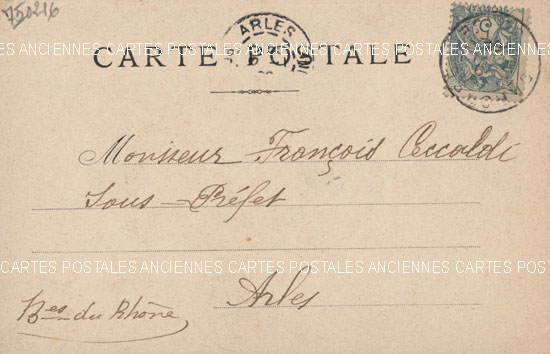 750216
ARLES
CARTES POSTALES ANCIENNES CARTES POSTALES ANCIENNES CARTES POSTALES ANCIENNES
CARTE POSTALE
Monsieur François Ceccaldi
Sous-Préfet
CARTES POSTALES ANCIENNES CARTES POSTALES ANCIENNES CARTES POSTALES ANCIENNES
Arles
Bes du Rhône